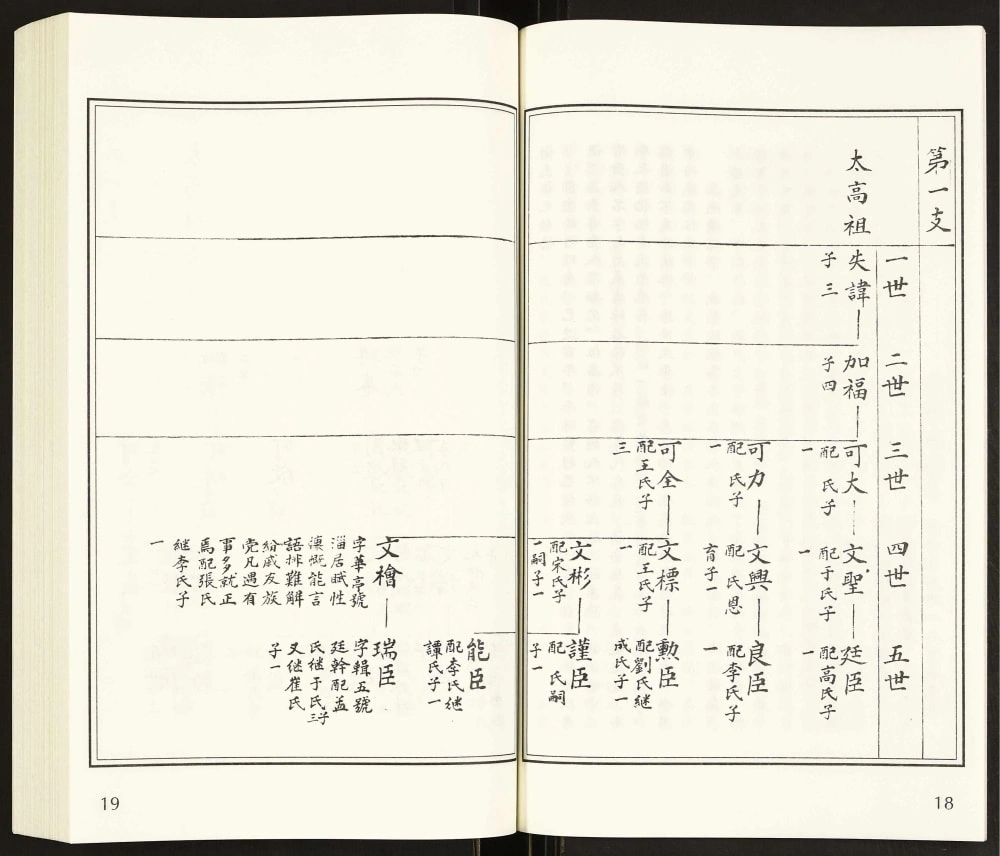 第一支
一世
二世
三世
四世
五世
太高祖
失諱
子三
加福
子四
可大
配 氏子
一
文聖
配于氏子
一
廷臣
配高氏子
一
可力
配 氏子
一
文興
配 氏恩
育子一
良臣
配李氏子
一
可全
配王氏子
三
文標
配王氏子
一
勳臣
配劉氏繼
成氏子一
文彬
配宋氏子
一嗣子一
謹臣
配 氏嗣
子一
能臣
配李氏繼
譚氏子一
文檜
字華亭號
淄居賦性
慷慨能言
語排難解
紛戚友族
党凡遇有
事多就正
焉配張氏
繼李氏子
一
瑞臣
字輯五號
廷幹配孟
氏继于氏子三
又继崔氏
子一
18
19